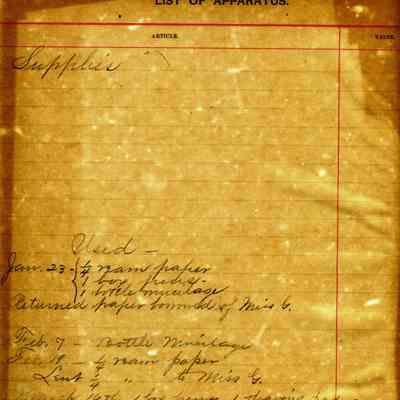 LIST OF APPARATUS.
ARTICLE. VALUE.
Supplies
Used -
Jan. 23 - 1/4 ream paper
1 box pens
1 bottle mucilage
Returned paper borrowed of Miss G.
Feb. 7 - Bottle Mucilage
Feb. 19 - 1/4 ream paper
Lent 1/4 " to Miss G.
March 1 box pens